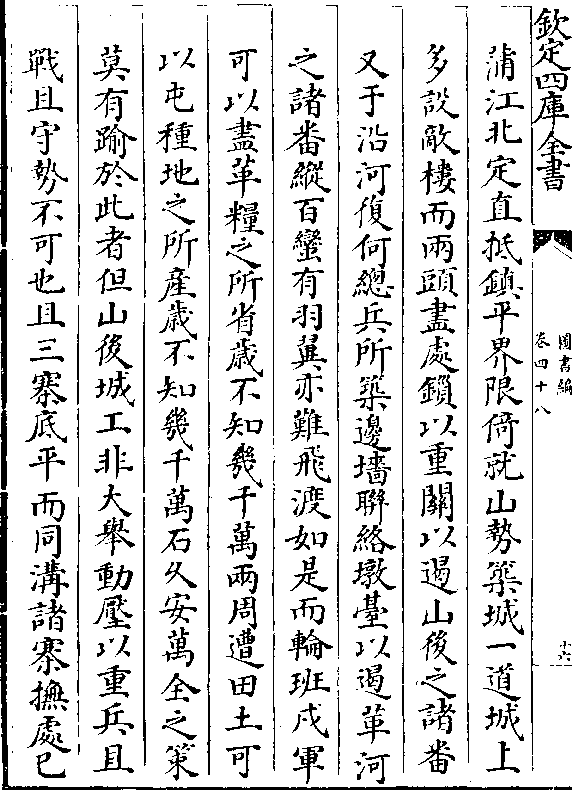 欽定四庫全書
圖書編
卷四十八
十六
蒲江北定直抵鎮平界限倚就山勢築城一道城上
多設敵樓而兩頭盡處鎖以重關以遏山後之諸番
又于沿河復何總兵所築邊墻聯絡墩臺以遏革河
之諸番縱百蠻有羽翼亦難飛渡如是而輪班戍軍
可以盡革糧之所省歲不知幾千萬兩周遭田土可
以屯種地之所産歲不知幾千萬石久安萬全之策
莫有踰於此者但山後城工非大舉動壓以重兵且
戰且守勢不可也且三寨底平而同溝諸寨撫處已